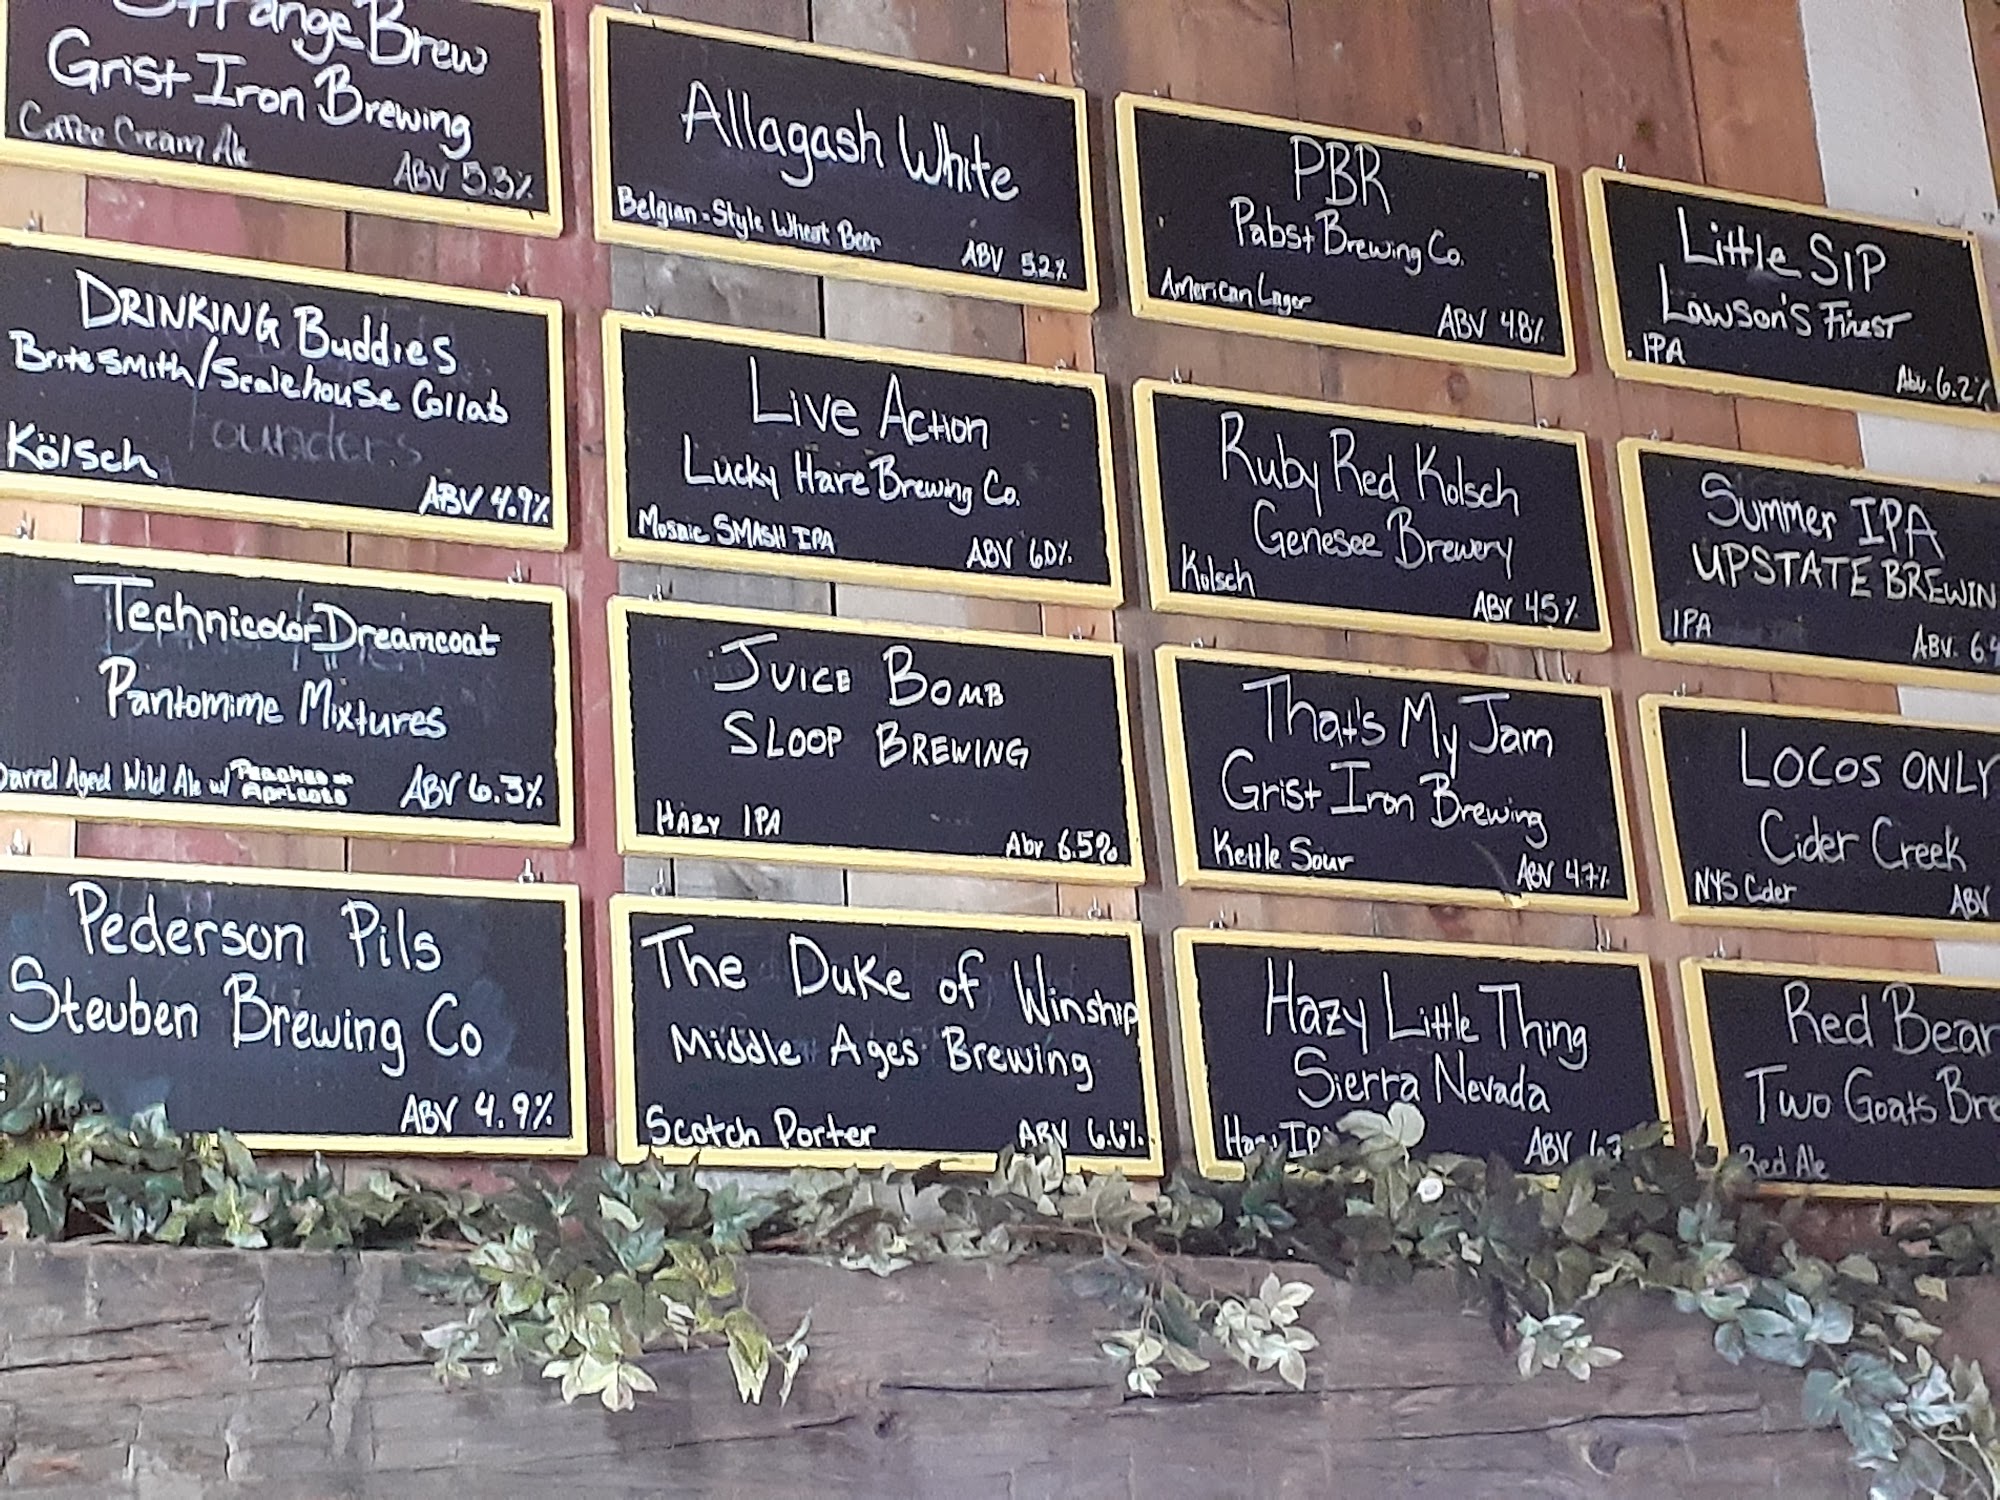 Strange Brew
Grist Iron Brewing
Coffee Cream Ale
ABV 5.3%
Allagash White
Belgian-Style Wheat Beer
ABV 5.2%
PBR
Pabst Brewing Co.
American Lager
ABV 4.8%
Little SIP
Lawson's Finest
IPA
Abv. 6.2%
DRINKING Buddies
Britesmith/Scalehouse Collab
founders
Kölsch
ABV 4.9%
Live Action
Lucky Hare Brewing Co.
Mosaic SMASH IPA
ABV 6.0%
Ruby Red Kolsch
Genesee Brewery
Kolsch
ABV 4.5%
Summer IPA
UPSTATE BREWIN
IPA
ABV. 6.4
Technicolor Dreamcoat
Pantomime Mixtures
Barrel Aged Wild Ale w/ Peaches +
Apricots
ABV 6.3%
JUICE BOMB
SLOOP BREWING
HAZY IPA
Abv 6.5%
That's My Jam
Grist Iron Brewing
Kettle Sour
ABV 4.7%
LOCOS ONLY
Cider Creek
NYS Cider
ABV
Pederson Pils
Steuben Brewing Co
ABV 4.9%
The Duke of Winship
Middle Ages Brewing
Scotch Porter
ABV 6.6%
Hazy Little Thing
Sierra Nevada
Hazy IPA
ABV 6.7
Red Bear
Two Goats Bre
Red Ale